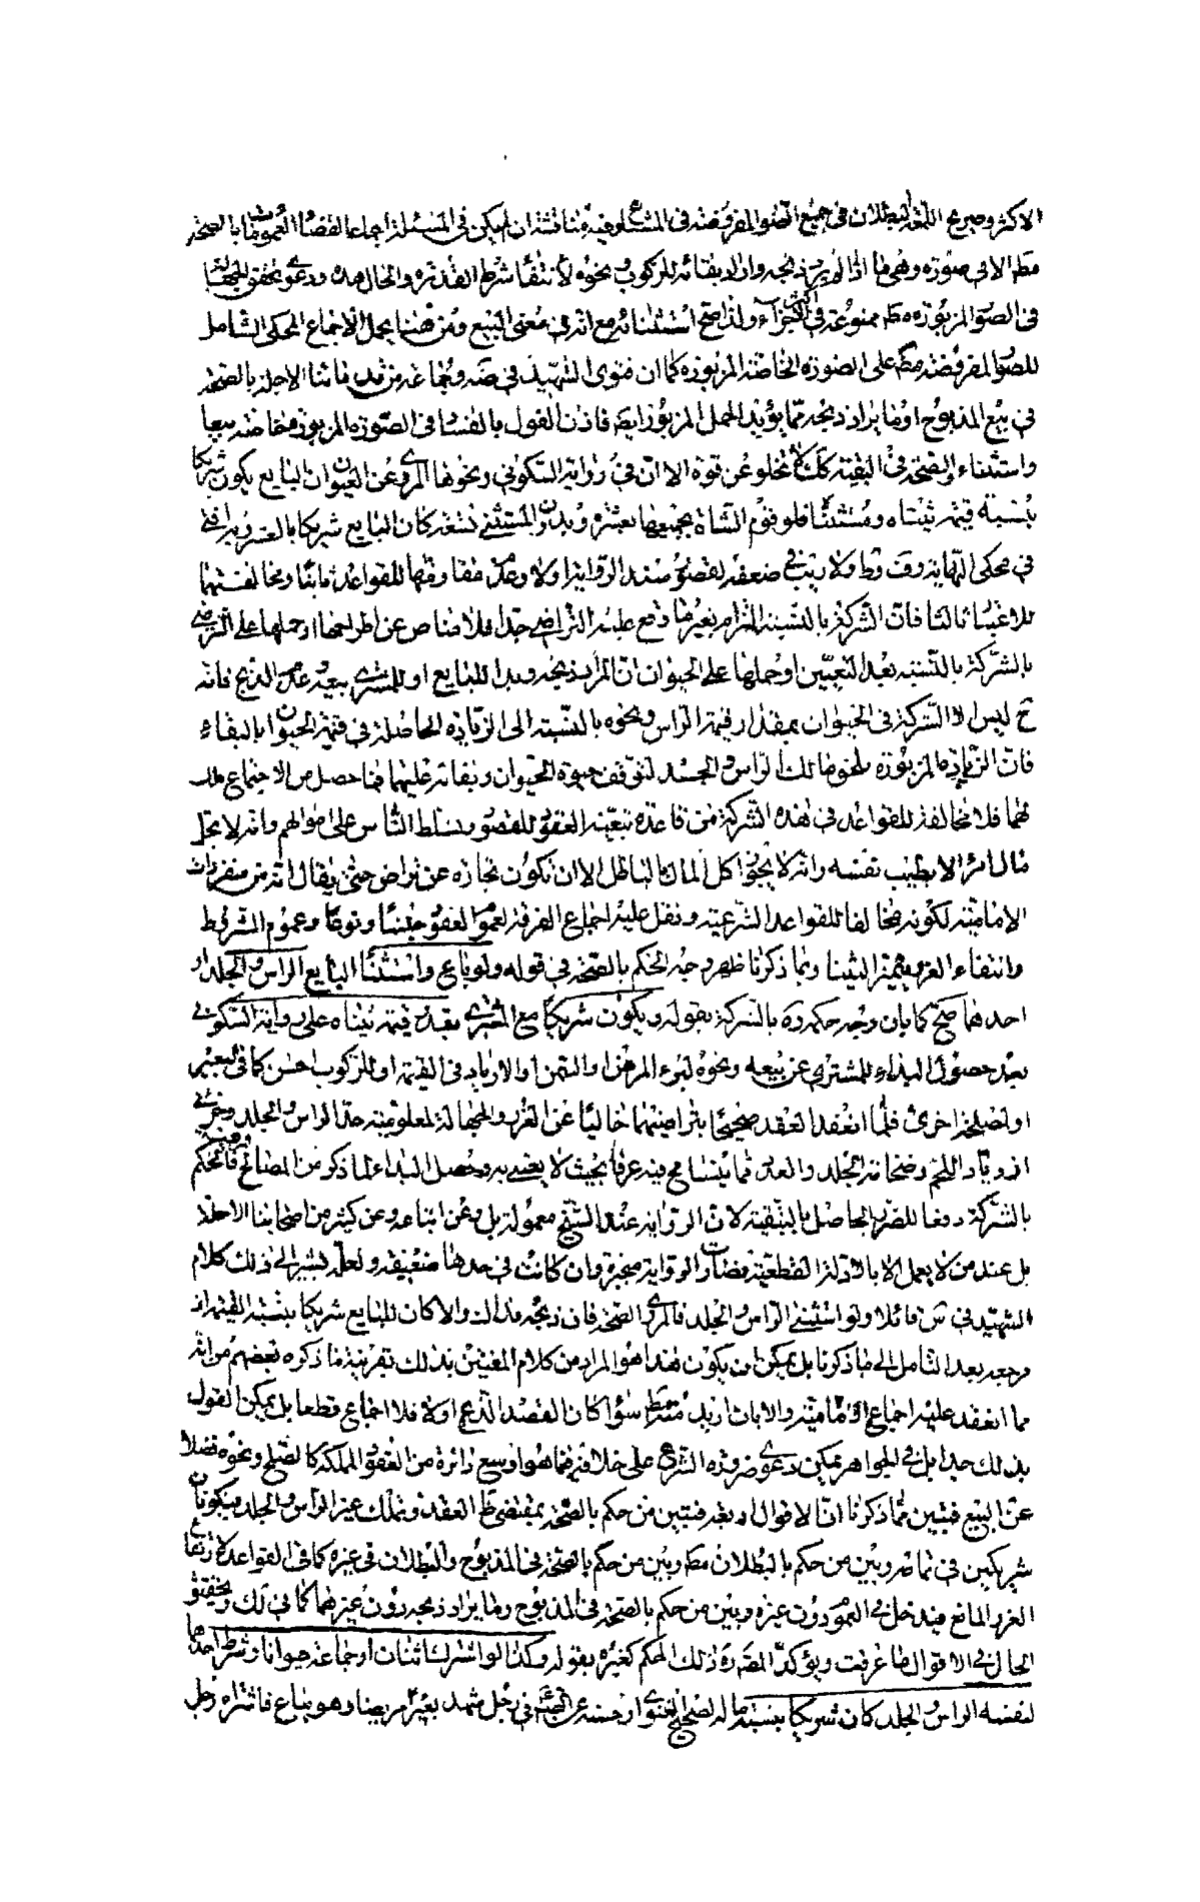 الاكثر وصريح اللمعة البطلان فى جميع الصّور المفروضة فى المتناع وفيه مناقشة ان لم يكن فى المسئلة اجماع القضاء العمومات بالصحّة
مطر الا فى صورة وهى ما اذا لم يرد ذبحه وان اد بقائه للركوب ونحوه لانتفاء شرط القدرة والحال هذه ودعوى تحقق الجهالة
فى الصّور المزبورة مط ممنوعة فى اكثر الاجزاء ولذا صحّ استثنائه مع انه فى معنى البيع ومن هنا يحمل الاجماع المحكى الشامل
للصّور المفروضة مط على الصورة الخاصّة المزبورة كما ان فتوى الشهيد فى ضه وجماعة من تبعه فاتنا الاجلة بالصحّة
فى بيع المذبوح او ما يراد ذبحه ممّا يؤيد الحمل المزبور ايضا فاذن القول بالفساد فى الصّورة المزبورة خاصة بيعا
واستثناء والصحّة فى البقيّة كك لا تخلو عن قوة الا ان فى رواية السّكونى ونحوها المروى عن العيون ان البايع يكون شريكا
بنسبة قيمة ثنياه ومستثناه فلو قوّم الشاة بجميعها بعشرة وبدون المستثنى بتسعة كان البايع شريكا بالعشر وبه افتى
فى محكى النهاية وقت وط ولا ريب فى ضعفه لقصور سند الرّواية اولا وعدم مقاومتها للقواعد ثانيا ومخالفتهما
للاعتبار ثالثا فان الشركة بالنسبة التزام بغير ما وقع عليه التراضى جدا فلا مناص عن اطراحها او حملها على التراضى
بالشّركة بالنّسبة بعد التعيّن او حملها على الحيوان ان المراد ذبحه وبدا للبايع او للمشترى بيعه عدم الذبح فانه
ح ليس له الشركة فى الحيوان بمقدار قيمة الراس ونحوه بالنّسبة الى الزيادة الحاصلة فى قيمة الحيوان بالبقاء
فان الزيادة المزبورة ملحق مالك الراس والجسد لتوقف حيوة الحيوان وبقائه عليهما فما حصل من الاجتماع ملك
لهما فلا مخالفة للقواعد فى هذه الشّركة من قاعدة تبعيّة العقود للقصود وتسلط النّاس على اموالهم وانه لا يحلّ
مال امرء الا بطيب نفسه وانه لا يجوز اكل المال بالباطل الا ان تكون تجارة عن تراض حتى يقال انه من منفردات
الاماميّة لكونه مخالفا للقواعد الشّرعية ونقل عليه اجماع الفرقة لعموم العقود جنسا ونوعا وعموم الشروط
وانتفاء الغرر بتميز الثنيا وبما ذكرنا ظهر وجه الحكم بالصحّة فى قوله ولو باع واستثنى البايع الراس والجلد او
احدهما صحّ كما بان وجه حكمه ره بالشركة بقوله ويكون شريكا مع المشترى بقدر قيمة ثنياه على رواية السّكونى
بعد حصول البداء للمشترى عن بيعه ونحوه لبرء المرض او السّمن والازدياد فى القيمة او للركوب احسن كما فى البعير
او لمصلحة اخرى فلمّا انعقد العقد صحيحا بتراضيهما خاليا عن الغرر والجهالة لمعلوميّة حدّ الراس والجلد وعرفى
ازدياد اللحم وضخامة الجلد والعدم ممّا يتسامح فيه عرفا بحيث لا يعتنى به وحصل البداء لما ذكر من المصالح فالحكم
بالشركة دفعا للضرر الحاصل بالتبقية لان الرواية عند الشيخ معمولة بل وعن اتباعه وعن كثير من اصحابنا الاجلاء
بل عند من لا يعمل الا بالادلة القطعيّة فصارت الرواية منجبرة وان كانت فى حدها ضعيفة ولعلّه يشير الى ذلك كلام
الشهيد فى س قائلا ولو استثنى الراس والجلد فالمروى الصحّة فان ذبحه فذاك والا كان للبايع شريكا بنسبة القيمة انه
وجعه بعد التامل الى ما ذكرنا بل يمكن ان يكون هذا هو المراد من كلام المفتين بذلك بقرينة ما ذكره بعضهم من انّه
مما انعقد عليه اجماع الاماميّة والا بان اريد مط سواء كان القصد الذّبح اولا فلا اجماع قطعا بل يمكن القول
بذلك جدا بل فى الجواهر يمكن دعوى ضرورة الشرع على خلافه فيما هو اوسع دائرة من العقود المملّكة كالصّلح ونحوه فضلا
عن البيع فتبين ممّا ذكرنا انّ الاقوال اربعة فتبين من حكم بالصحّة بمقتضى ظ العقد وتملّك عين الراس والجلد فيكونان
شريكين فى تمامه وبين من حكم بالبطلان مط وبين من حكم بالصحّة فى المذبوح والبطلان فى غيره كما فى القواعد لارتفاع
الغرر المانع فيدخل فى العموم دون غيره وبين من حكم بالصحّة فى المذبوح وما يراد ذبحه دون غيرهما كما فى لك وتحقيق
الحال فى الاقوال ما عرفت ويؤكدّ المصّ ره ذلك الحكم كغيره بقوله وكذا لو اشترك اثنان او جماعة حيوانا وشرط احدهما
لنفسه الراس والجلد كان شريكا بنسبة ماله لصحيح الغنوى او حسنه عن الصّ ع فى رجل شهد بعيرا مريضا وهو يباع فاشتراه رجل